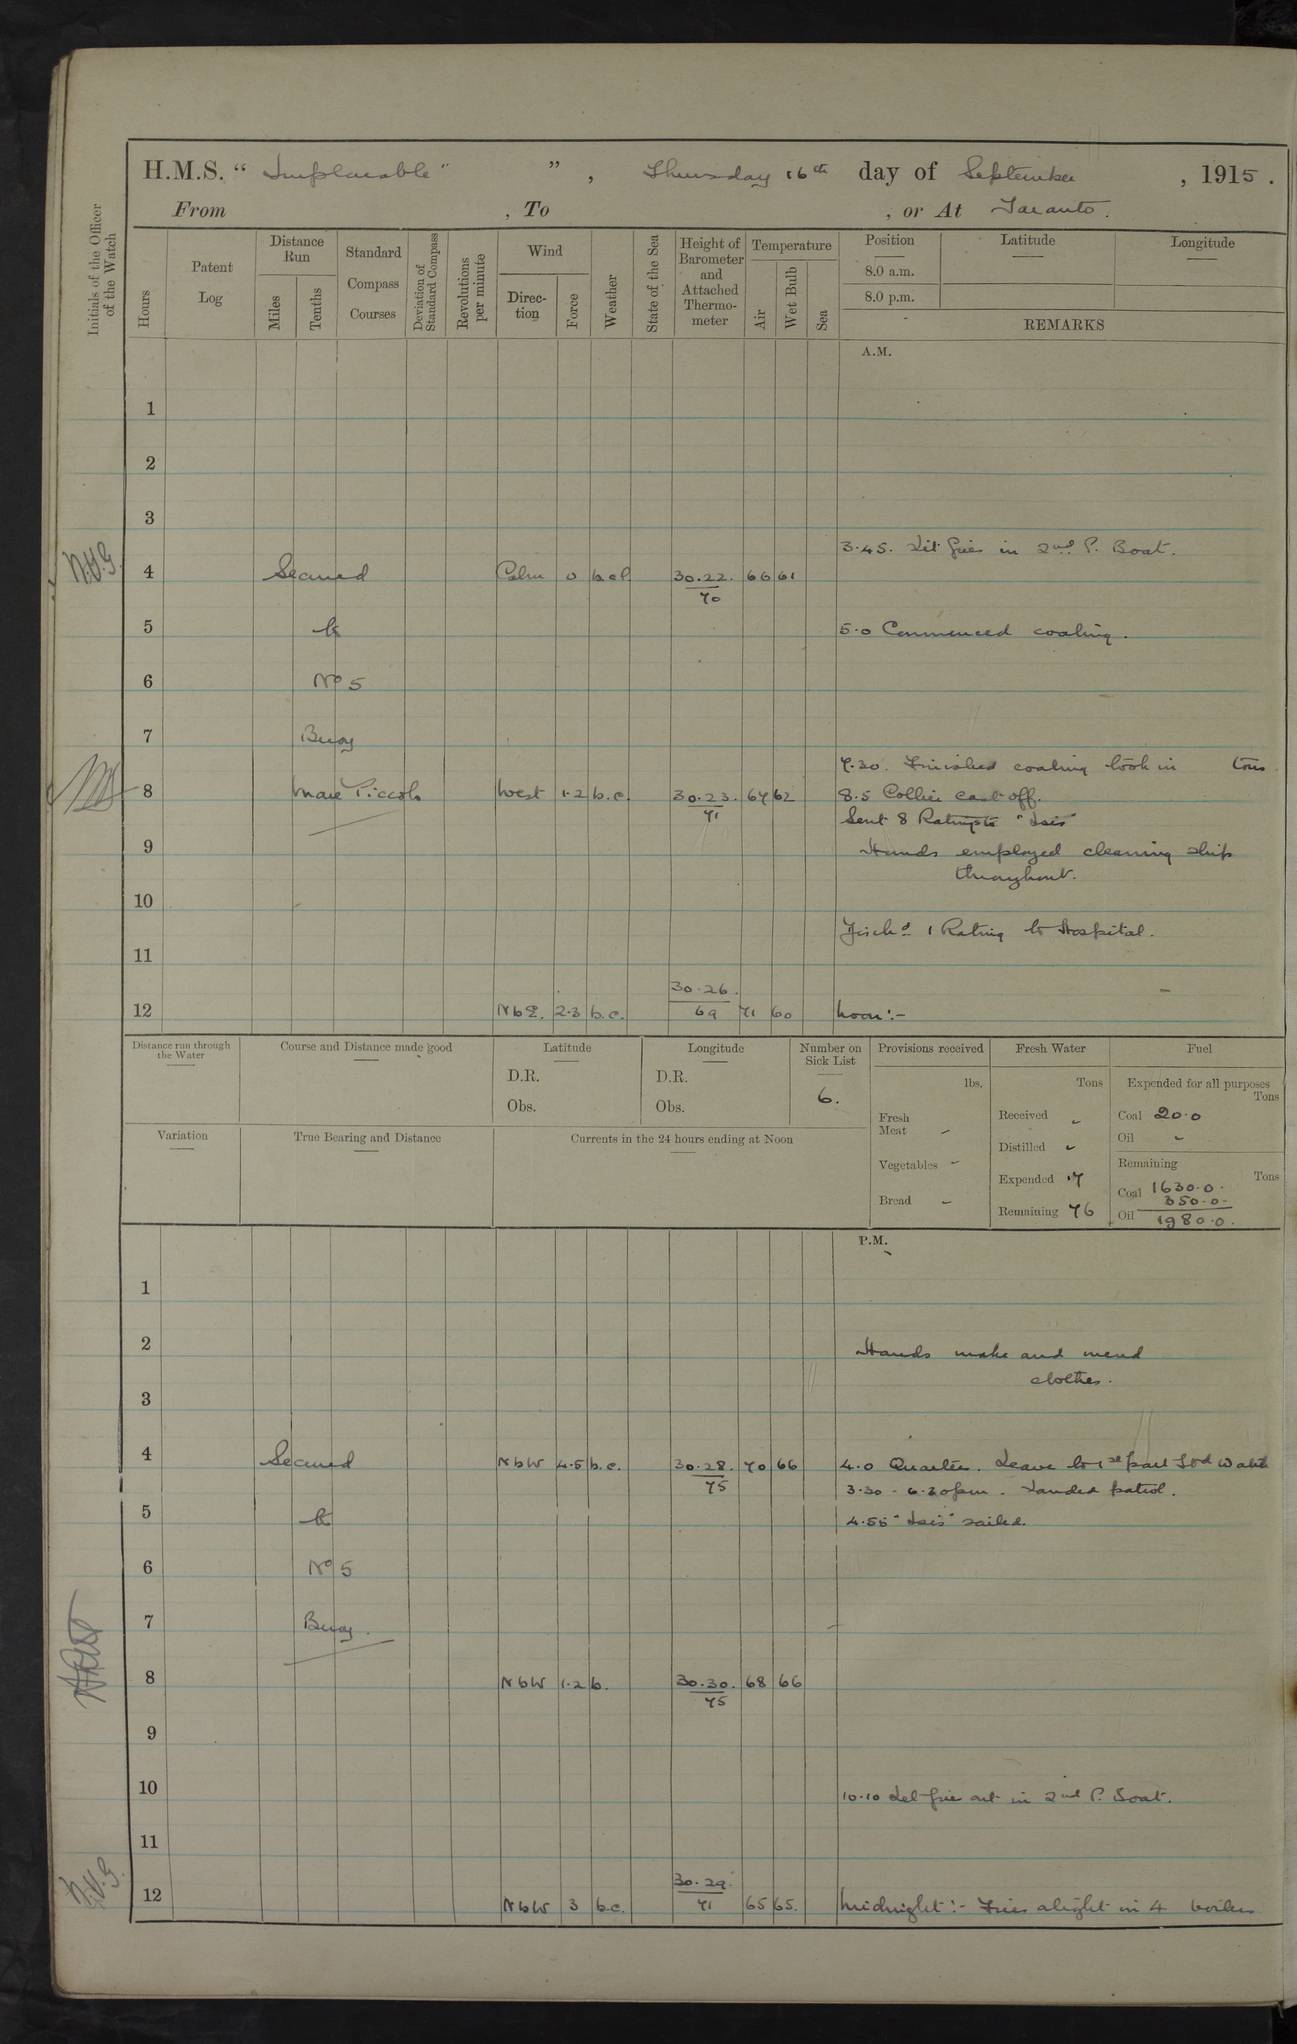 H.M.S. “ Implacable ” , Thursday 16th day of September , 1915 .
From , To , or At Taranto.
Initials of the Officer of the Watch
Hours
Patent Log
Distance Run
Miles
Tenths
Standard Compass Courses
Deviation of Standard Compass
Revolutions per minute
Wind
Direction
Force
Weather
State of the Sea
Height of Barometer and Attached Thermometer
Temperature
Air
Wet Bulb
Sea
Position Latitude Longitude
8.0 a.m.
8.0 p.m.
REMARKS
A.M.
1
2
3
3.45. Lit fires in 2nd P. Boat.
4 Secured Calm 0 b.c.l. 30.22. 66 61
70
5 to 5.0 Commenced coaling.
6 No 5
7 Buoy
7.30. Finished coaling took in tons
8 Mare Piccolo West 1.2 b.c. 30.23. 67 62 8.5 Collier cast off.
71 Sent 8 Ratings to "Isis"
9 Hands employed cleaning ship
throughout.
10
Disch'd 1 Rating to Hospital.
11
30.26.
12 NbE. 2.3 b.c. 69 71 60 Noon:-
Distance run through the Water
Course and Distance made good
Latitude
D.R.
Obs.
Longitude
D.R.
Obs.
Number on Sick List
6.
Provisions received
lbs.
Fresh Meat -
Vegetables -
Bread -
Fresh Water
Tons
Received -
Distilled -
Expended 17
Remaining 76
Fuel
Expended for all purposes
Tons
Coal 20.0
Oil -
Remaining
Tons
Coal 1630.0.
350.0.
Oil 1980.0.
Variation
True Bearing and Distance
Currents in the 24 hours ending at Noon
P.M.
1
2 Hands make and mend
clothes.
3
4 Secured NbW 4.5 b.c. 30.28. 70 66 4.0 Quarters. Leave to 1st part Stbd Watch
75 3.30 - 6.30pm. Landed patrol.
5 to 4.55 "Isis" sailed.
6 No 5
7 Buoy.
8 NbW 1.2 b. 30.30. 68 66
75
9
10 10.10 Let fires out in 2nd P. Boat.
11
30.29.
12 NbW 3 b.c. 71 65 65. Midnight:- Fires alight in 4 boilers